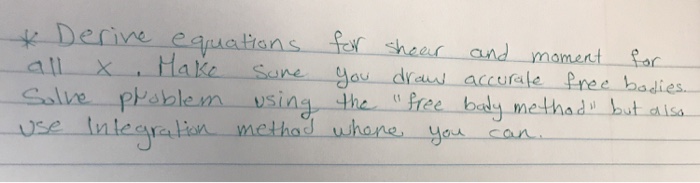 * Derive equations for shear and moment for
all x. Make sure you draw accurate free bodies.
Solve problem using the "free body method" but also
use Integration method where you can.